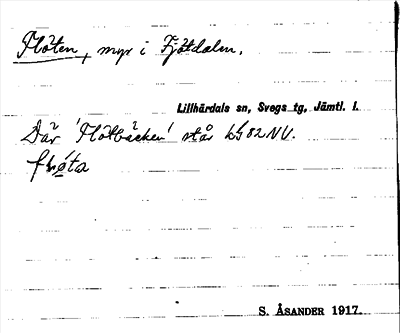 Flöten, myr i Fjätdalen.
Lillhärdals sn, Svegs tg, Jämtl. l.
Där 'Flötbäcken' står LG 82 NV.
S. ÅSANDER 1917.